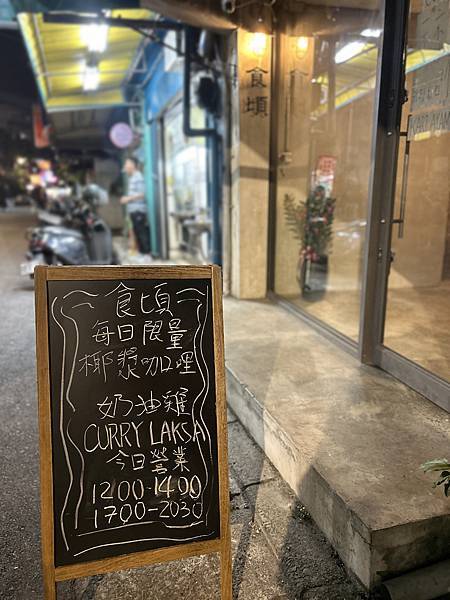 食頃
一食頃一
每日限量
椰漿咖哩
奶油雞
CURRY LAKSA
今日營業
1200-1400
1700-2030